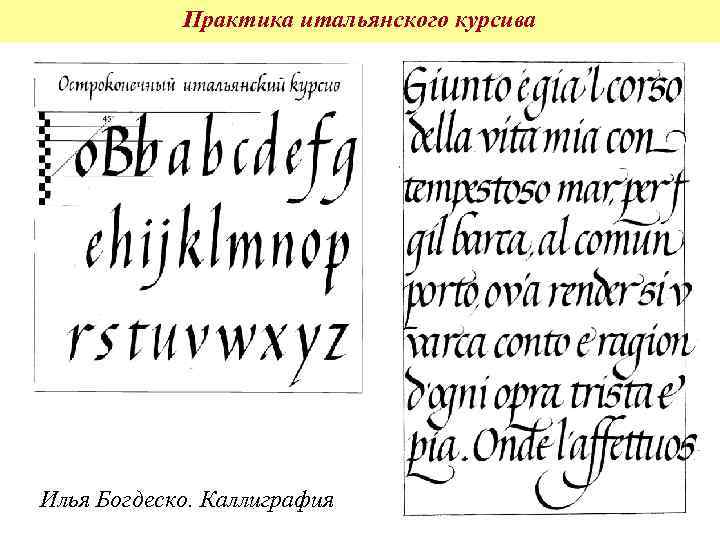 Практика итальянского курсива
Остроконечный итальянский курсив
45°
oBbabcdefg
ehijklmnop
rstuvwxyz
Giunto è gia'l corso
della vita mia con
tempestoso mar, per f
gil barca, al comun
porto, ov'a render si v
varca conto e ragion
d'ogni opra trista e
pia. Onde l'affettuos
Илья Богдеско. Каллиграфия